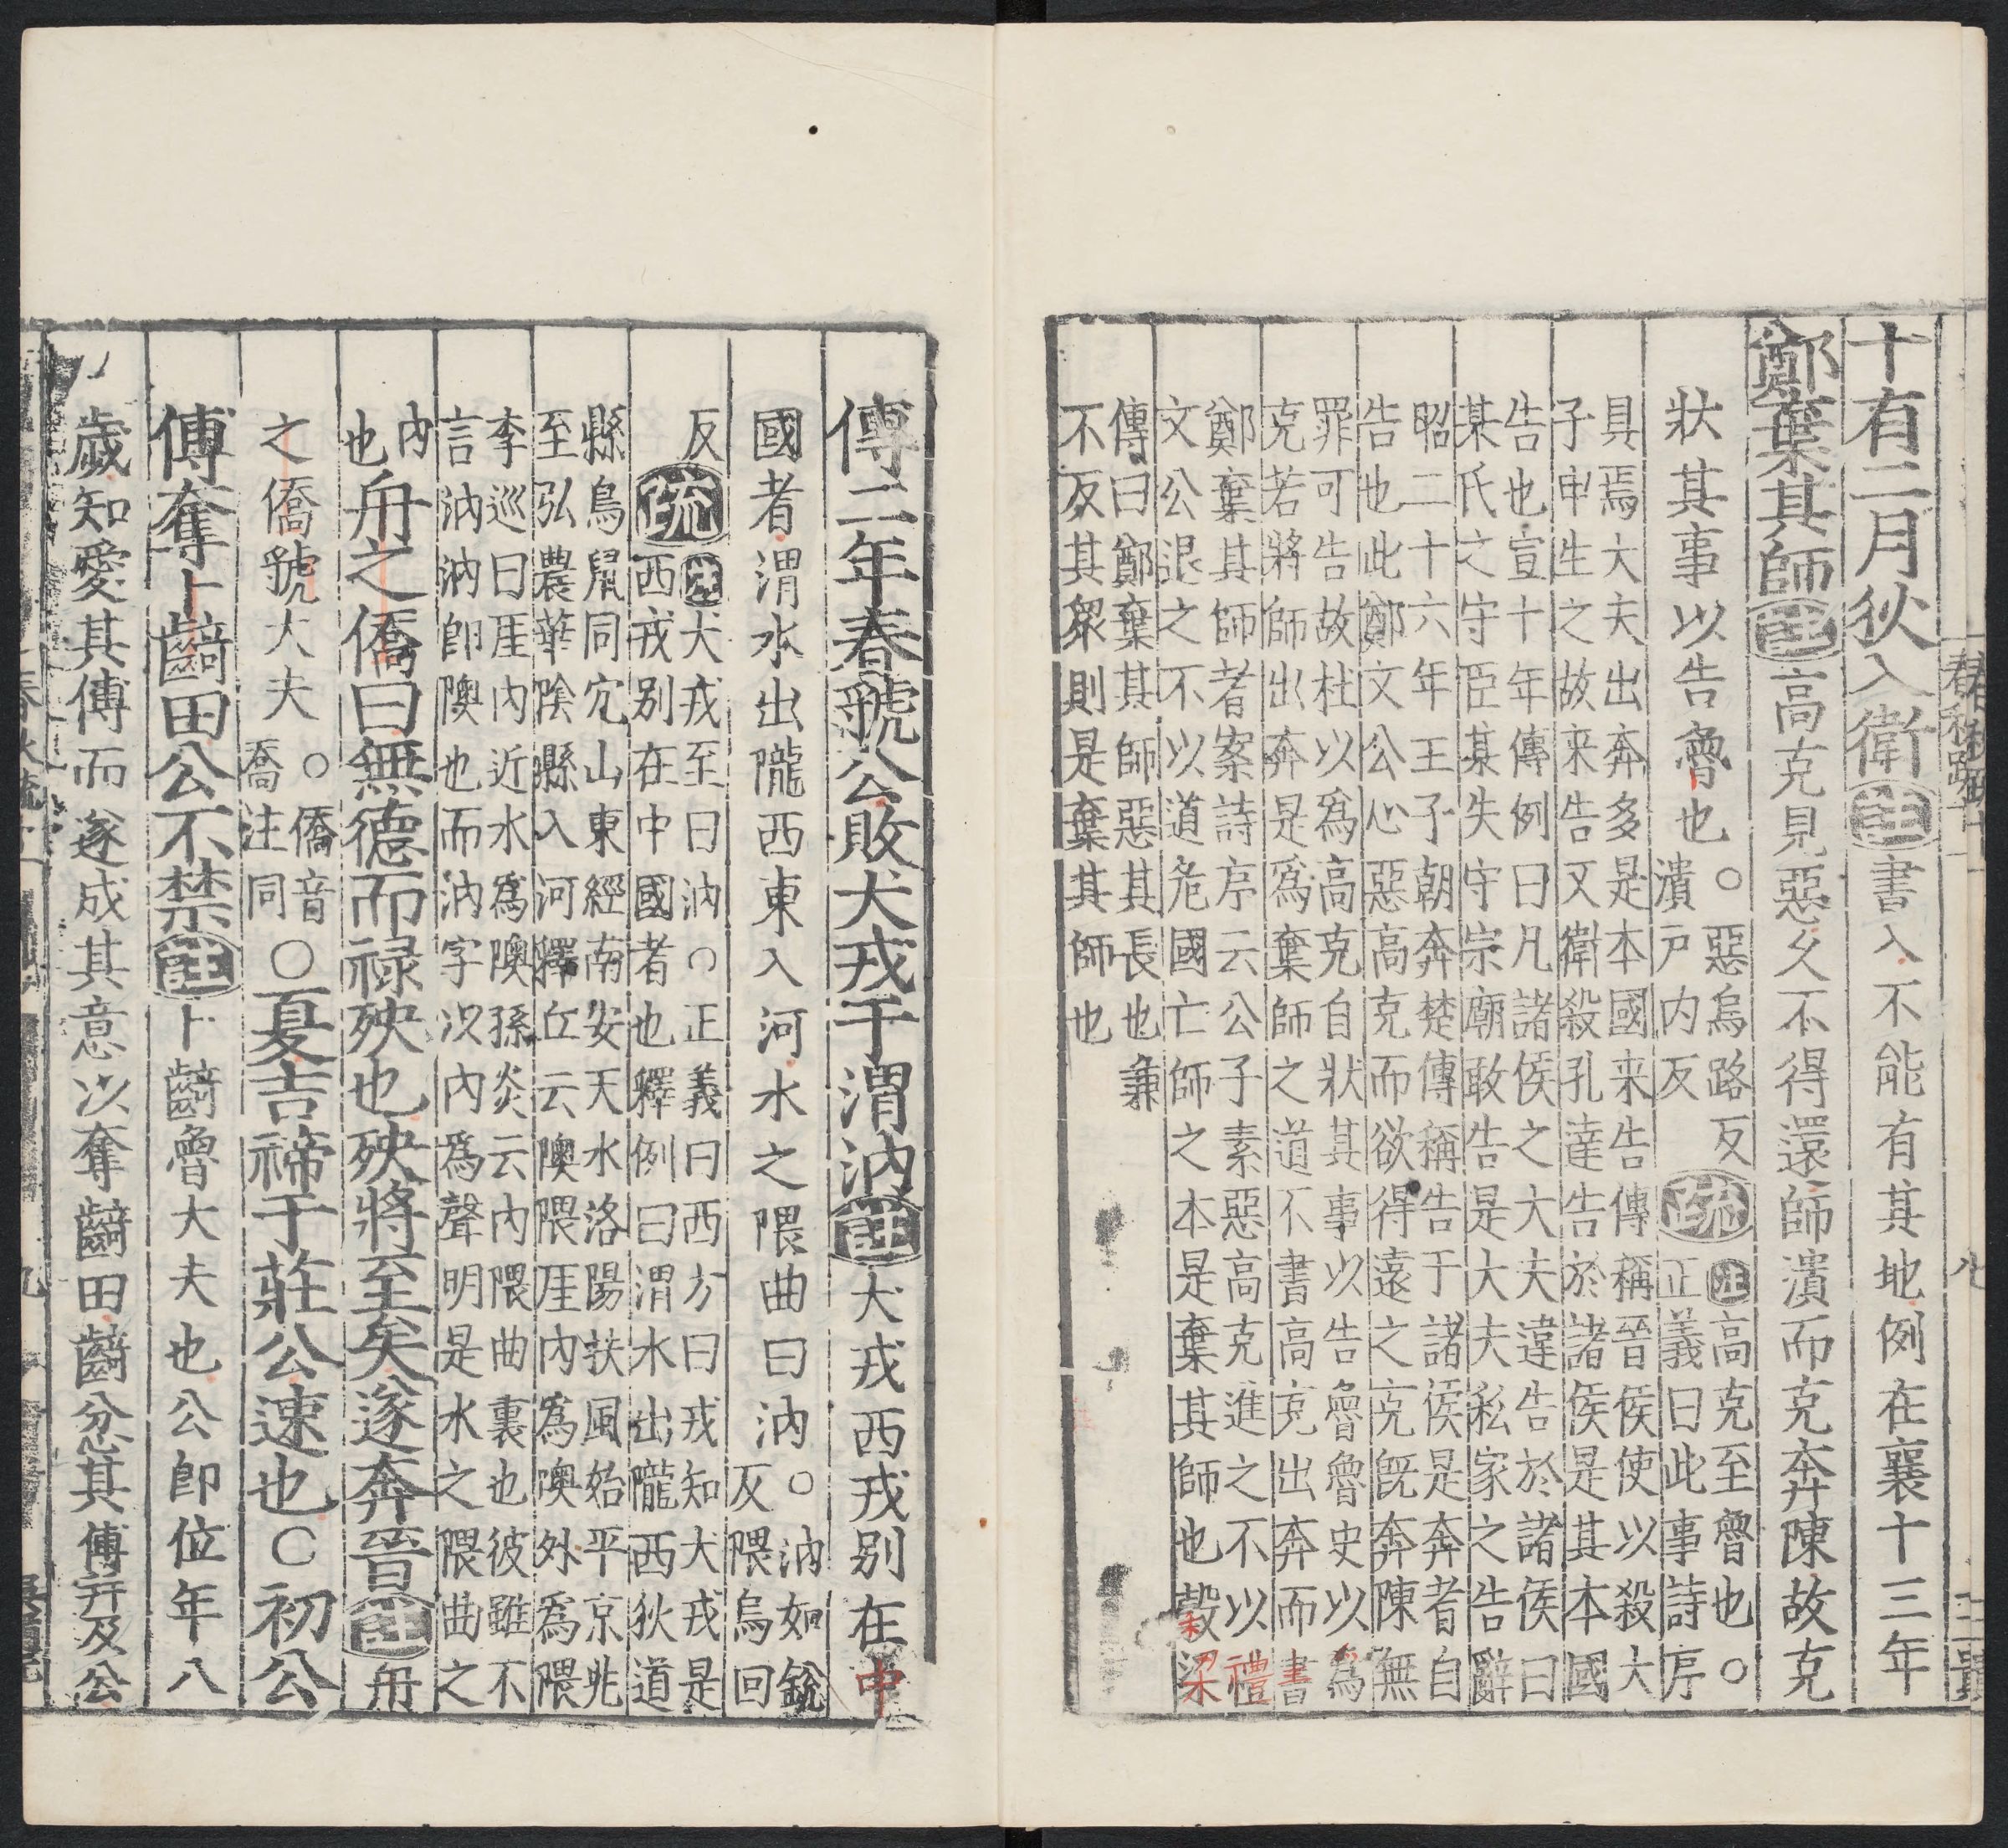 十有二月狄入衛註書入不能有其地例在襄十三年
鄭棄其師註高克見惡久不得還師潰而克奔陳故克
狀其事以告魯也○惡烏路反
潰戸内反疏註高克至魯也○
正義曰此事詩序
具焉大夫出奔多是本國来告傳稱晉侯使以殺大
子申生之故来告又衛殺孔達告於諸侯是其本國
告也宣十年傳例曰凡諸侯之大夫違告於諸侯曰
某氏之守臣某失守宗廟敢告是大夫私家之告辭
昭二十六年王子朝奔楚傳稱告于諸侯是奔者自
告也此鄭文公心惡高克而欲得遠之克既奔陳無
罪可告故杜以爲高克自狀其事以告魯魯史以爲
克若將師出奔是爲棄師之道不書高克出奔而書
鄭棄其師者案詩序云公子素惡高克進之不以禮
文公退之不以道危國亡師之本是棄其師也穀梁
傳曰鄭棄其師惡其長也兼
不反其衆則是棄其師也
傳二年春虢公敗犬戎于渭汭註犬戎西戎別在中
國者渭水出隴西東入河水之隈曲曰汭○汭如銳
反隈烏回
反疏註犬戎至曰汭○正義曰西方曰戎知犬戎是
西戎別在中國者也釋例曰渭水出隴西狄道
縣鳥鼠同穴山東經南安天水洛陽扶風始平京兆
至弘農華陰縣入河釋丘云隩隈厓内爲隩外爲隈
李巡曰厓内近水爲隩孫炎云内隈曲裏也彼雖不
言汭汭卽隩也而汭字以内爲聲明是水之隈曲之
内
也舟之僑曰無德而禄殃也殃將至矣遂奔晉註舟
之僑虢大夫○僑音
喬注同○夏吉禘于莊公速也○初公
傅奪卜齮田公不禁註卜齮魯大夫也公卽位年八
歲知愛其傅而遂成其意以奪齮田齮忿其傅并及公